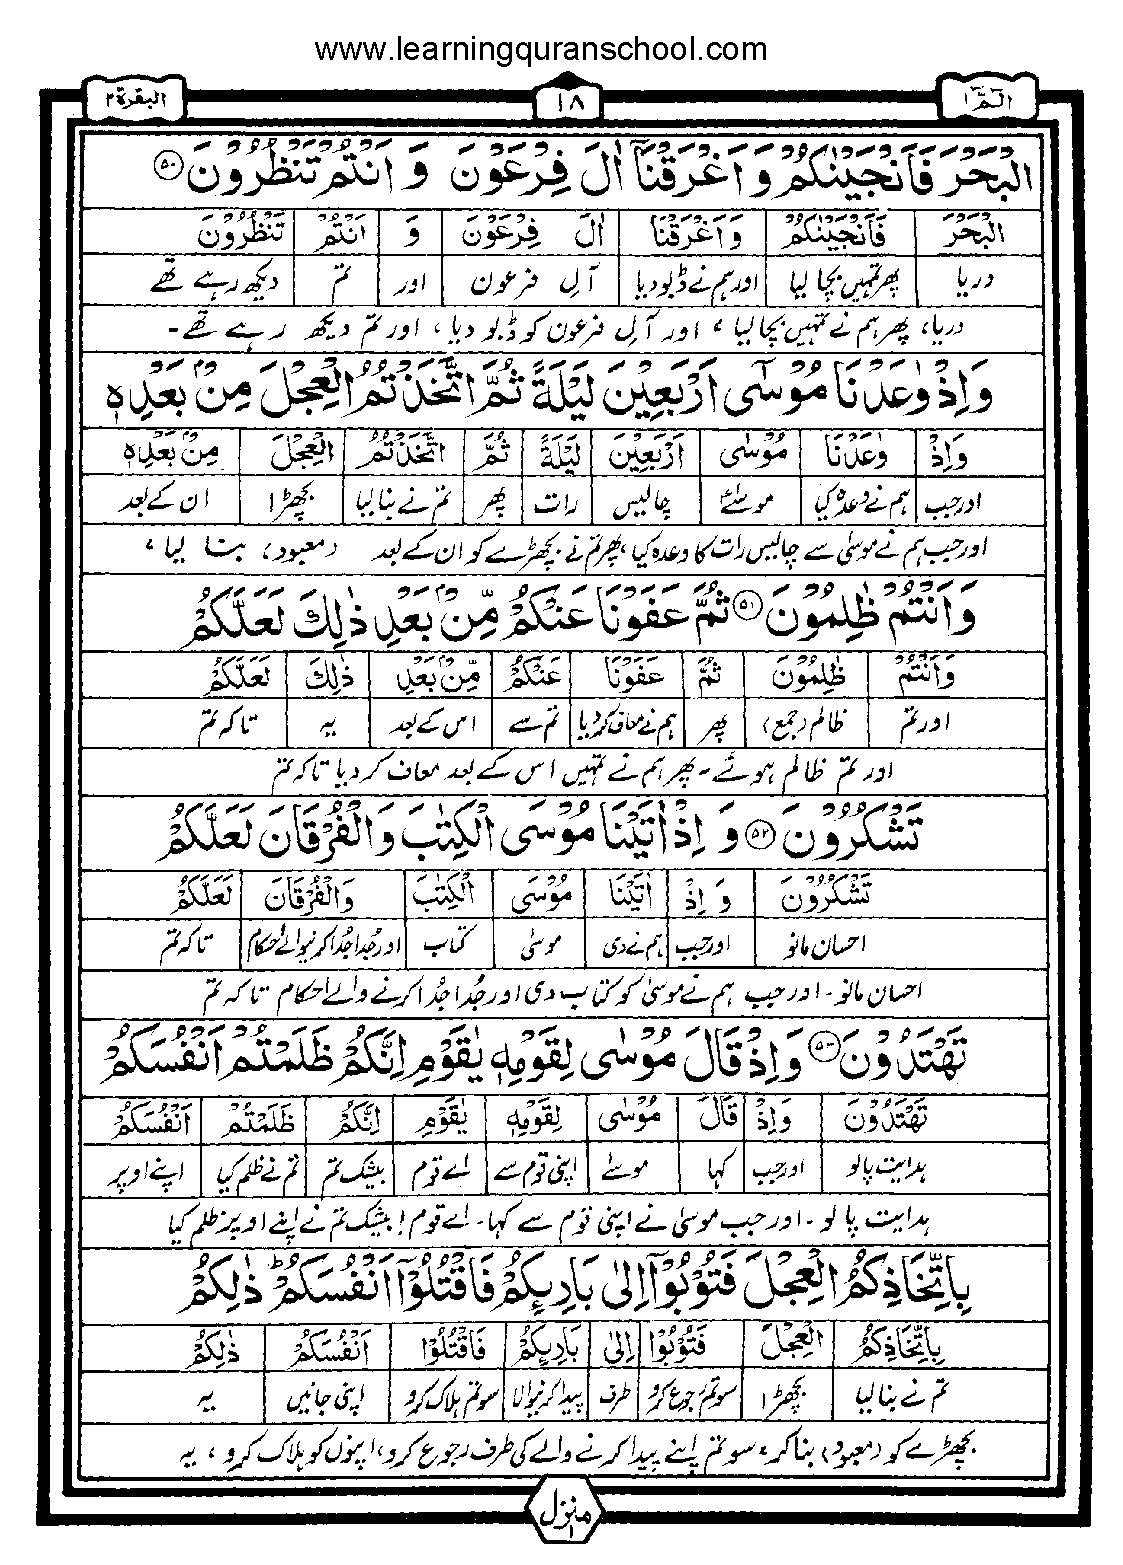 www.learningquranschool.com
الٓمّٓ ۱ ۱۸ البقرة ۲
الْبَحْرَ فَاَنْجَيْنٰكُمْ وَاَغْرَقْنَاۤ اٰلَ فِرْعَوْنَ وَ اَنْتُمْ تَنْظُرُوْنَ ۵۰
الْبَحْرَ فَاَنْجَيْنٰكُمْ وَاَغْرَقْنَا اٰلَ فِرْعَوْنَ وَ اَنْتُمْ تَنْظُرُوْنَ
دریا پھر تمہیں بچا لیا اور ہم نے ڈبو دیا آلِ فرعون اور تم دیکھ رہے تھے
دریا، پھر ہم نے تمہیں بچا لیا، اور آلِ فرعون کو ڈبو دیا، اور تم دیکھ رہے تھے۔
وَاِذْ وٰعَدْنَا مُوْسٰۤى اَرْبَعِيْنَ لَيْلَةً ثُمَّ اتَّخَذْتُمُ الْعِجْلَ مِنْۢ بَعْدِهٖ
وَاِذْ وٰعَدْنَا مُوْسٰى اَرْبَعِيْنَ لَيْلَةً ثُمَّ اتَّخَذْتُمُ الْعِجْلَ مِنْۢ بَعْدِهٖ
اور جب ہم نے وعدہ کیا موسیٰ چالیس رات پھر تم نے بنا لیا بچھڑا ان کے بعد
اور جب ہم نے موسیٰ سے چالیس رات کا وعدہ کیا، پھر تم نے بچھڑے کو ان کے بعد (معبود) بنا لیا،
وَاَنْتُمْ ظٰلِمُوْنَ ۵۱ ثُمَّ عَفَوْنَا عَنْكُمْ مِّنْۢ بَعْدِ ذٰلِكَ لَعَلَّكُمْ
وَاَنْتُمْ ظٰلِمُوْنَ ثُمَّ عَفَوْنَا عَنْكُمْ مِّنْۢ بَعْدِ ذٰلِكَ لَعَلَّكُمْ
اور تم ظالم (جمع) پھر ہم نے معاف کر دیا تم سے اس کے بعد یہ تاکہ تم
اور تم ظالم ہوئے۔ پھر ہم نے تمہیں اس کے بعد معاف کر دیا تاکہ تم
تَشْكُرُوْنَ ۵۲ وَ اِذْ اٰتَيْنَا مُوْسَى الْكِتٰبَ وَالْفُرْقَانَ لَعَلَّكُمْ
تَشْكُرُوْنَ وَ اِذْ اٰتَيْنَا مُوْسَى الْكِتٰبَ وَالْفُرْقَانَ لَعَلَّكُمْ
احسان مانو اور جب ہم نے دی موسیٰ کتاب اور جُدا جُدا کرنیوالے احکام تاکہ تم
احسان مانو۔ اور جب ہم نے موسیٰ کو کتاب دی اور جُدا جُدا کرنے والے احکام تاکہ تم
تَهْتَدُوْنَ ۵۳ وَاِذْ قَالَ مُوْسٰى لِقَوْمِهٖ يٰقَوْمِ اِنَّكُمْ ظَلَمْتُمْ اَنْفُسَكُمْ
تَهْتَدُوْنَ وَاِذْ قَالَ مُوْسٰى لِقَوْمِهٖ يٰقَوْمِ اِنَّكُمْ ظَلَمْتُمْ اَنْفُسَكُمْ
ہدایت پا لو اور جب کہا موسیٰ اپنی قوم سے اے قوم بیشک تم تم نے ظلم کیا اپنے اوپر
ہدایت پا لو۔ اور جب موسیٰ نے اپنی قوم سے کہا۔ اے قوم! بیشک تم نے اپنے اوپر ظلم کیا
بِاتِّخَاذِكُمُ الْعِجْلَ فَتُوْبُوْۤا اِلٰى بَارِئِكُمْ فَاقْتُلُوْۤا اَنْفُسَكُمْ ؕ ذٰلِكُمْ
بِاتِّخَاذِكُمُ الْعِجْلَ فَتُوْبُوْا اِلٰى بَارِئِكُمْ فَاقْتُلُوْا اَنْفُسَكُمْ ذٰلِكُمْ
تم نے بنا لیا بچھڑا سو تم رجوع کرو طرف پیدا کرنیوالا سو تم ہلاک کرو اپنی جانیں یہ
بچھڑے کو (معبود) بنا کر، سو تم اپنے پیدا کرنے والے کی طرف رجوع کرو، اپنوں کو ہلاک کرو، یہ
منزل ۱